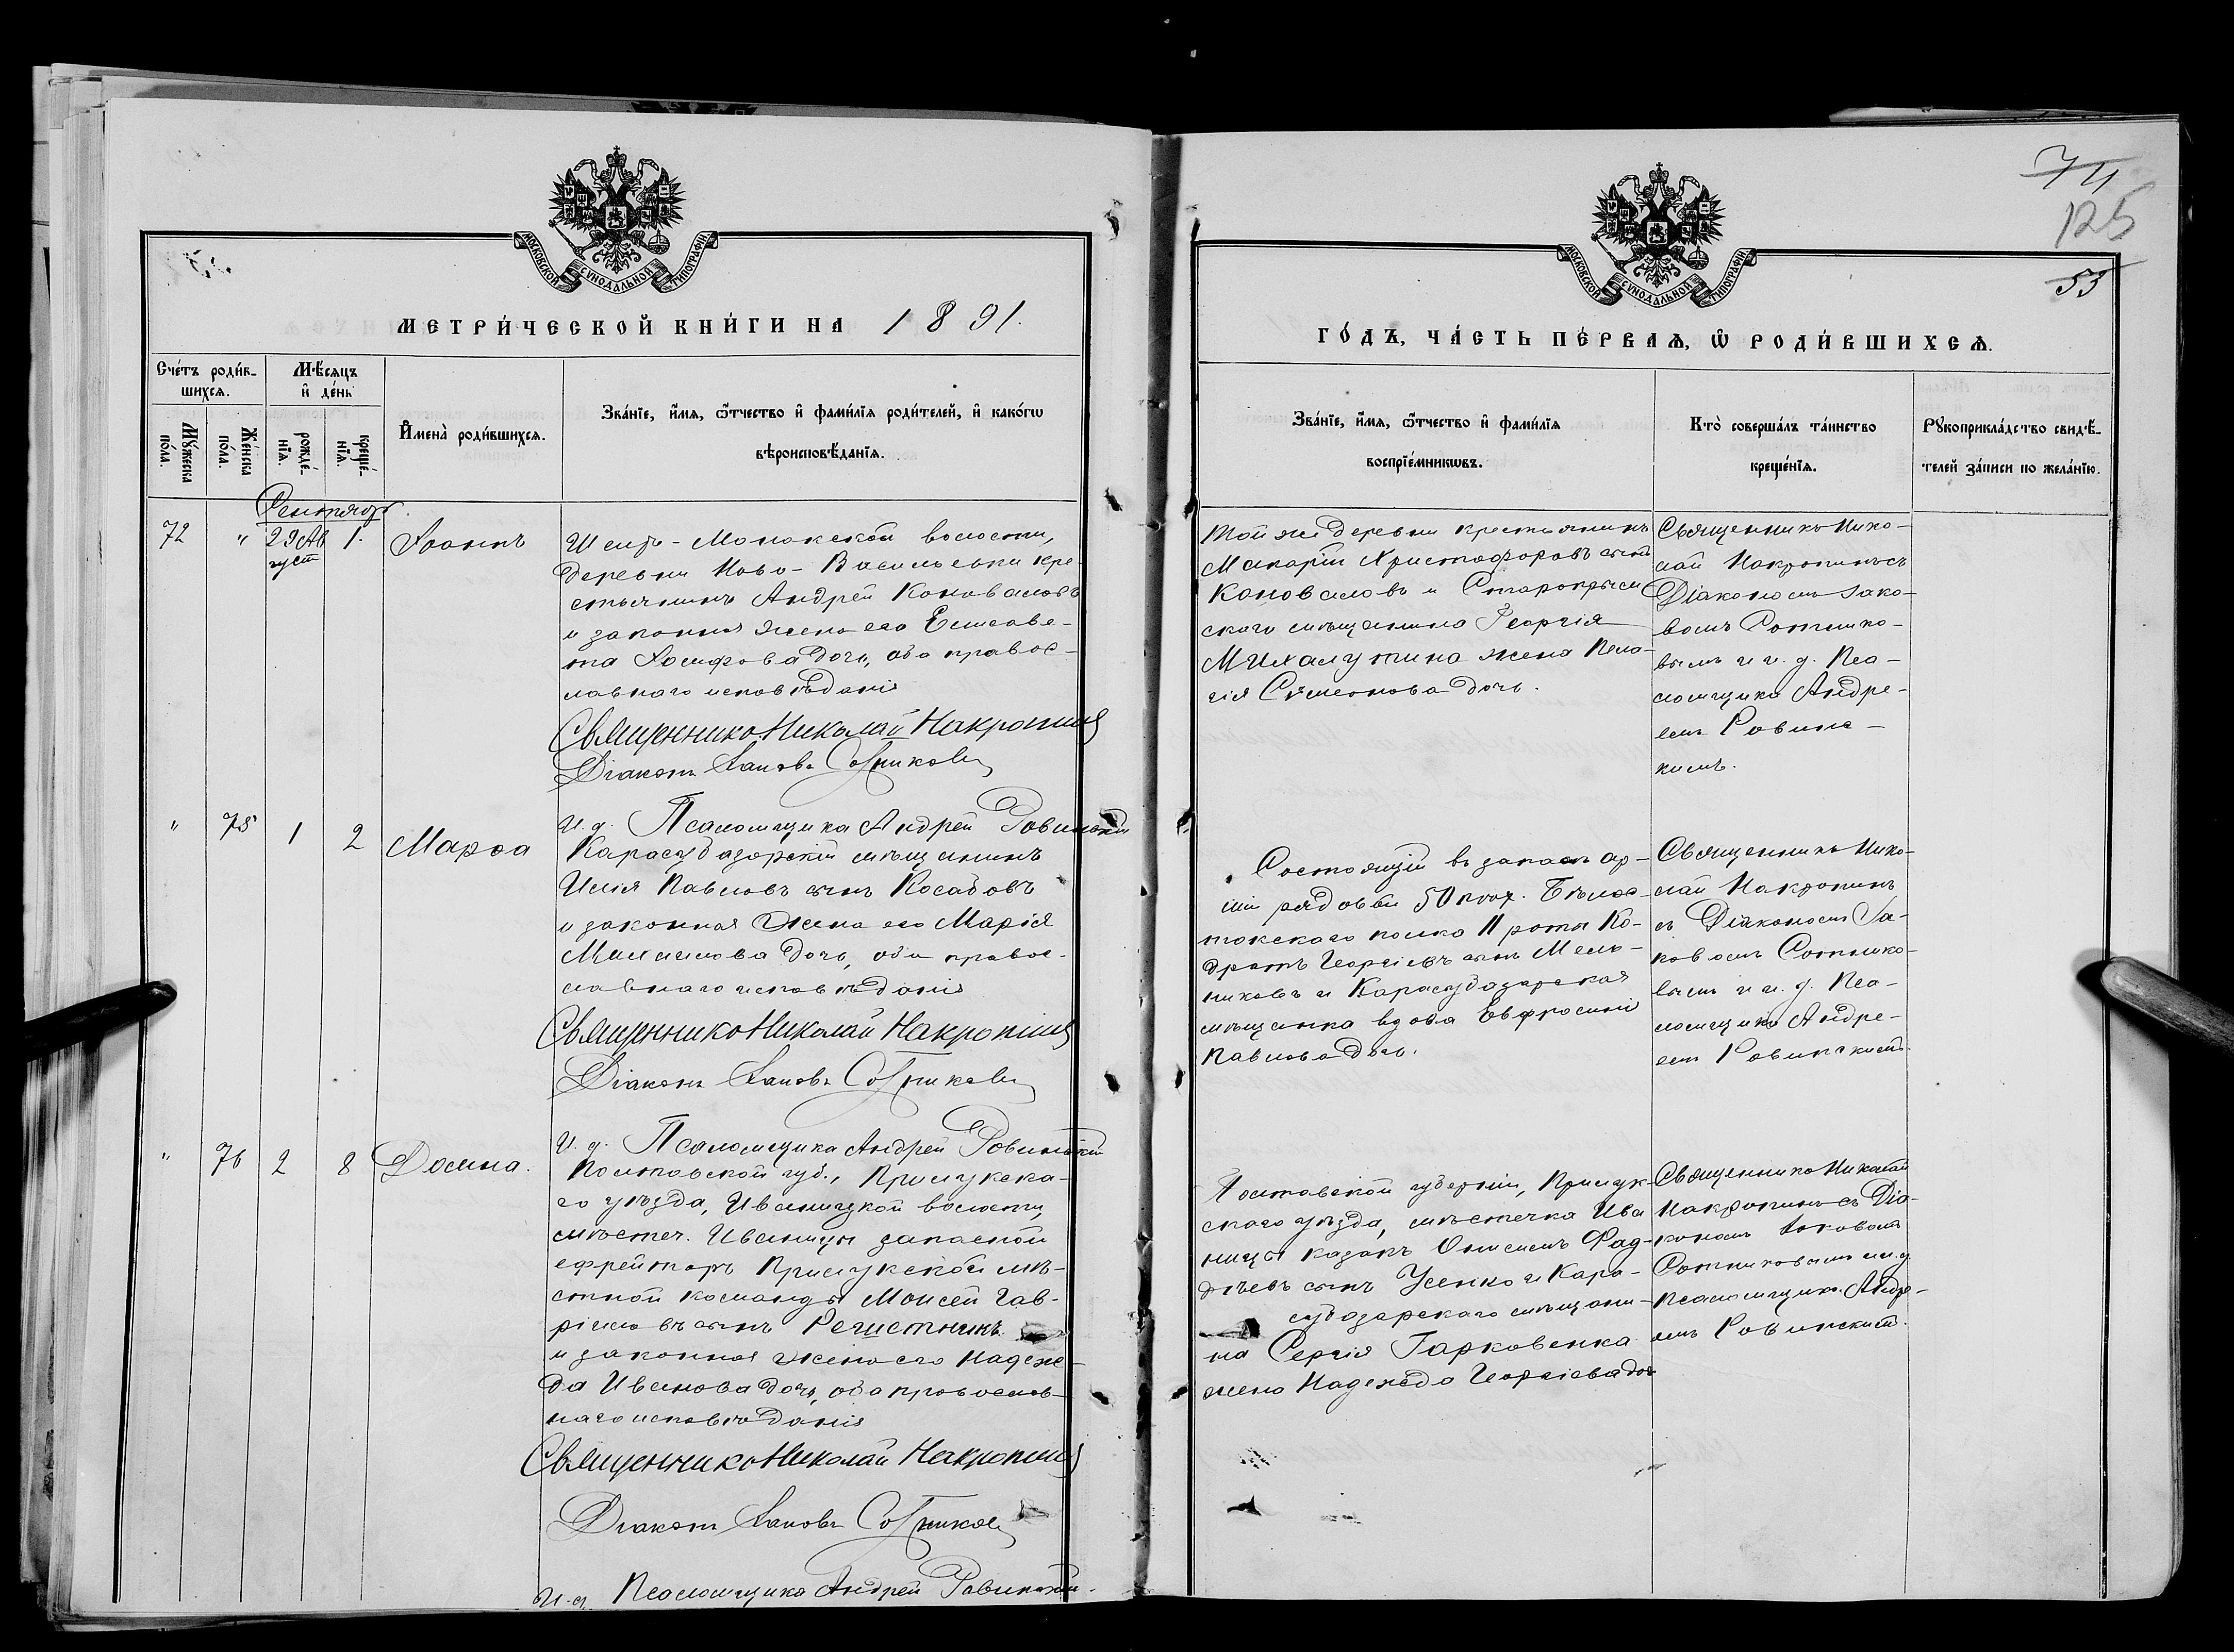 МОСКОВСКОЙ СѴНОДАЛЬНОЙ ТИПОГРАФІИ
МЕТРИ́ЧЕСКОЙ КНИ́ГИ НА 1891.
Сче́тъ роди́вшихся.
Мꙋ́жеска по́ла.
Же́нска по́ла.
Мѣ́сяцъ и҆ де́нь
рожде́нїѧ.
креще́нїѧ.
И҆мена̀ роди́вшихсѧ.
Зва́нїе, и҆́мѧ, ѻ҆́тчество и҆ фами́лїѧ роди́телей, и҆ како́гѡ
вѣроисповѣ́данїѧ.
Сентябрь.
72 " 29 Ав 1. Іоаннъ
густ
волости,
деревни Ново-Васильевки кре-
стьянинъ Андрей Коноваловъ
и законная жена его Елисаве-
та Іосифова дочь, оба правос-
лавнаго исповѣданія
Священникъ Николай Накропинъ
Діаконъ Іаковъ Сотниковъ
И. д. Псаломщика Андрей Ровинскій
" 75 1 2 Марѳа
Карасубазарскій мѣщанинъ
Илія Павловъ сынъ Косабовъ
и законная жена его Марія
дочь, оба правос-
лавнаго исповѣданія
Священникъ Николай Накропинъ
Діаконъ Іаковъ Сотниковъ
И. д. Псаломщика Андрей Ровинскій
" 76 2 8 Домна.
Полтавской губ., Прилукска-
го уѣзда, Иваницкой волости,
мѣстеч. Иваницы запасной
ефрейторъ Прилукской мѣ-
стной команды Моисей Гав-
ріиловъ сынъ
и законная жена его Надеж-
да Иванова дочь, оба православ-
наго исповѣданія
Священникъ Николай Накропинъ
Діаконъ Іаковъ Сотниковъ
И. д. Псаломщика Андрей Ровинскій
74
125
53
МОСКОВСКОЙ СѴНОДАЛЬНОЙ ТИПОГРАФІИ
ГО́ДЪ, ЧА́СТЬ ПЕ́РВАѦ, Ѡ҆ РОДИ́ВШИХСѦ.
Зва́нїе, и҆́мѧ, ѻ҆́тчество и҆ фами́лїѧ
воспрїе́мникѡвъ.
Кто̀ соверша́лъ та́инство
креще́нїѧ.
Рꙋкоприкла́дство свидѣ́-
телей за́писи по жела́нїю.
Той же деревни крестьянинъ
Макарій Христофоровъ сынъ
Коноваловъ и Старокрым
скаго мѣщанина Георгія
жена Пела-
гія Сѵмеонова дочь.
Священникъ Нико-
лай Накропинъ съ
Діакономъ Іако-
вомъ Сотнико-
вымъ и и. д. Пса-
ломщика Андре-
емъ Ровинс-
кимъ.
Состоящій въ запасѣ ар-
міи рядовой 50 пѣх. Бѣлос-
токскаго полка 11 роты Ко-
дратъ Георгіевъ сынъ Мель-
никовъ и Карасубазарская
мѣщанка вдова Евфросинія
Павлова дочь.
Священникъ Нико-
лай Накропинъ
съ Діакономъ Іа-
ковомъ Сотнико-
вымъ и и. д. Пса-
ломщика Андре-
емъ Ровинскимъ.
Полтавской губерніи, Прилук-
скаго уѣзда, мѣстечка Ива
ницы казакъ Онисимъ Фад-
дѣевъ сынъ Усенко и Кара-
субазарскаго мѣщани-
на Сергія Гарковенка
жена Надежда Георгіева дочь
Священникъ Николай
Накропинъ съ Діа-
кономъ Іаковомъ
Сотниковымъ и и. д
псаломщика Андре-
емъ Ровинскимъ.